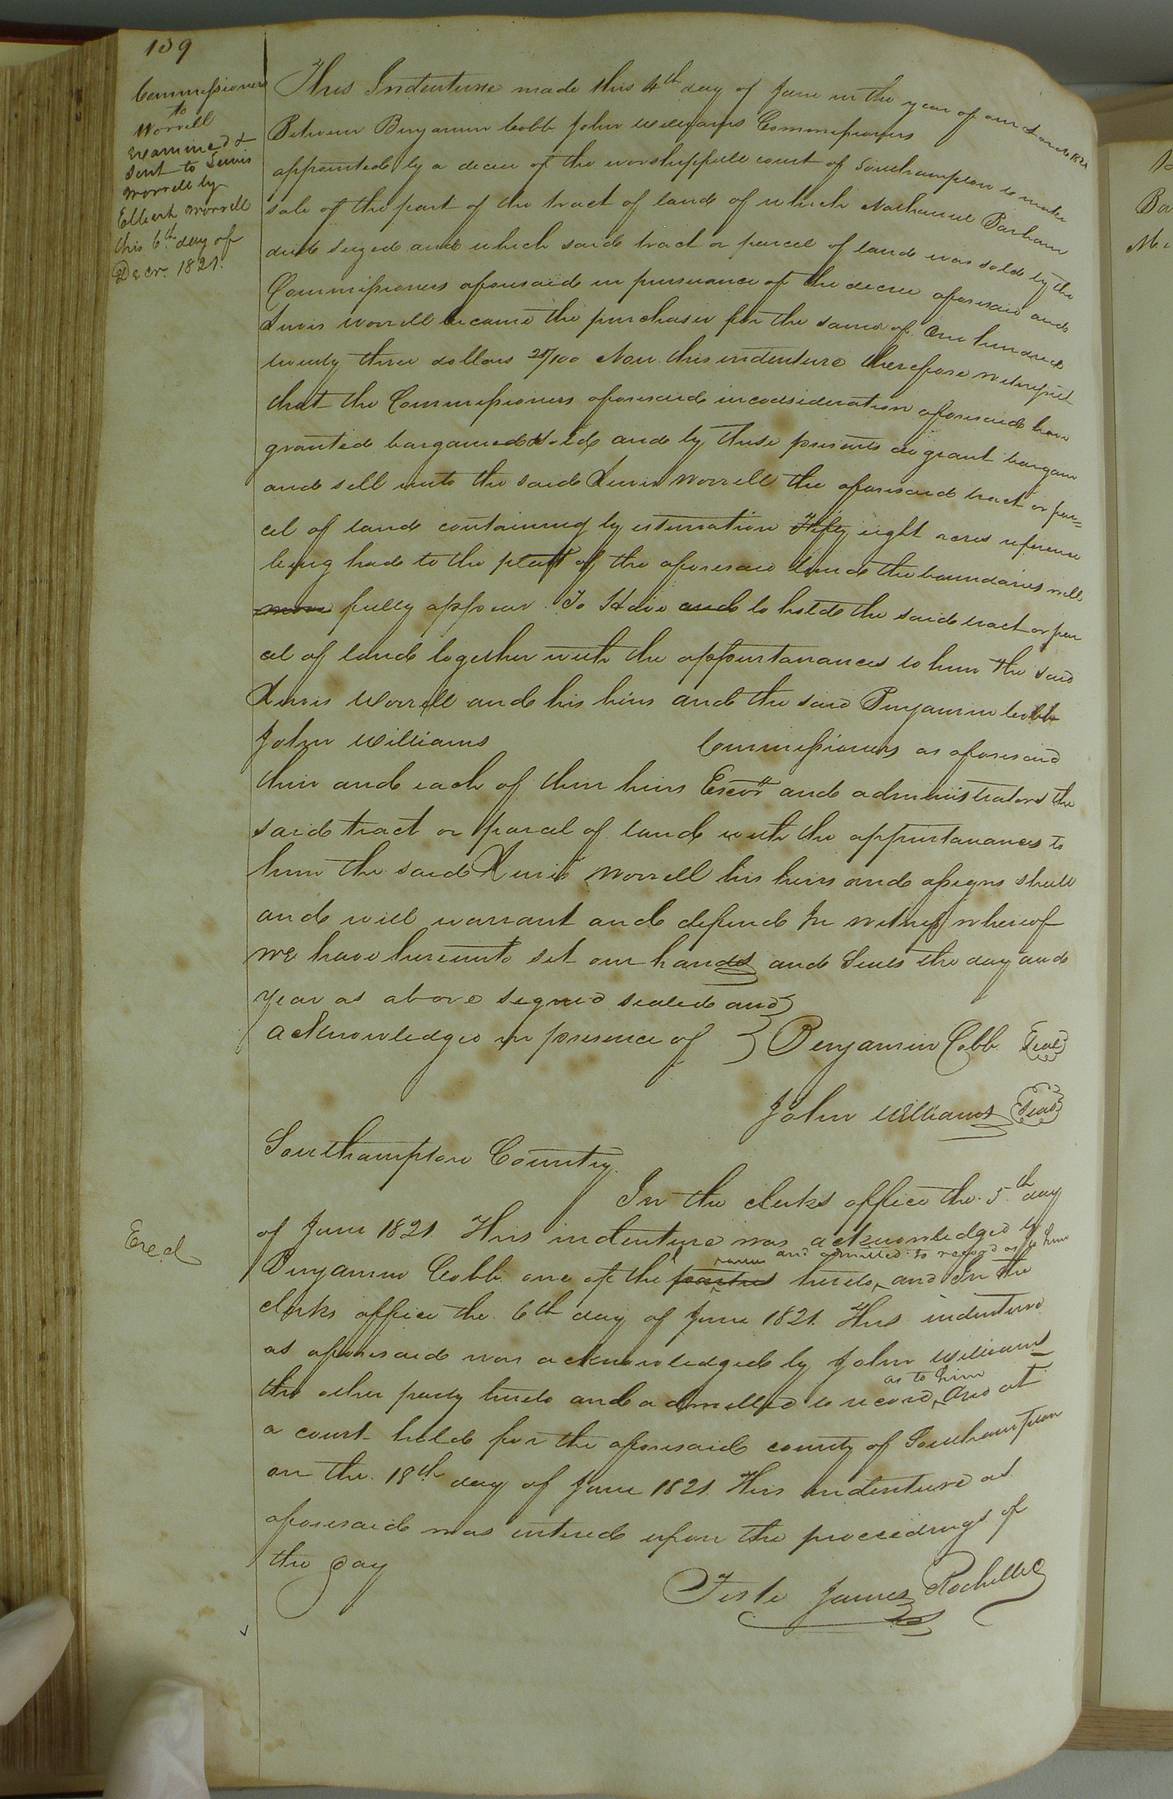 139
Commissioners
to
Worrell
Examined &
sent to Lewis
Worrell by
Elbert Worrell
this 6th day of
Decr. 1821.
This Indenture made this 4th day of June in the year of our Lord 1821
Between Benjamin Cobb John Williams Commissioners
appointed by a decree of the worshipfull court of Southampton to make
sale of the part of the tract of land of which Nathaniel Barham
died seized and which said tract or parcel of land was sold by the
Commissioners aforesaid in pursuance of the decree aforesaid and
Lewis Worrell became the purchaser for the same of One hundred
twenty three dollars 25/100 Now this indenture therefore witnesseth
that the Commissioners aforesaid in consideration aforesaid have
granted bargained & sold and by these presents do grant bargain
and sell unto the said Lewis Worrell the aforesaid tract or par=
cel of land containing by estimation Fifty eight acres reference
being had to the platt of the aforesaid land the boundaries will
more fully appear. To Have and to hold the said tract or par
cel of land together with the appurtanances to him the said
Lewis Worrell and his heirs and the said Benjamin Cobb
John Williams Commissioners as aforesaid
their and each of their heirs Exeors and administrators the
said tract or parcel of land with the appurtanances to
him the said Lewis Worrell his heirs and assigns shall
and will warrant and defend In witness whereof
we have hereunto set our hands and Seals the day and
year as above signed sealed and
acknowledged in presence of Benjamin Cobb Seal
John Williams Seal
Southampton County.
In the clerks office the 5th day
of June 1821 This indenture was acknowledged by
and admitted to record as to him
Benjamin Cobb one of the parties hereto, and In the
Exed
clerks office the 6th day of June 1821. This indenture
as aforesaid was acknowledged by John Williams
as to him
the other party hereto and admitted to record, And at
a court held for the aforesaid county of Southampton
on the 18th day of June 1821 This indenture as
aforesaid was entered upon the proceedings of
the day
Teste James Rochelle